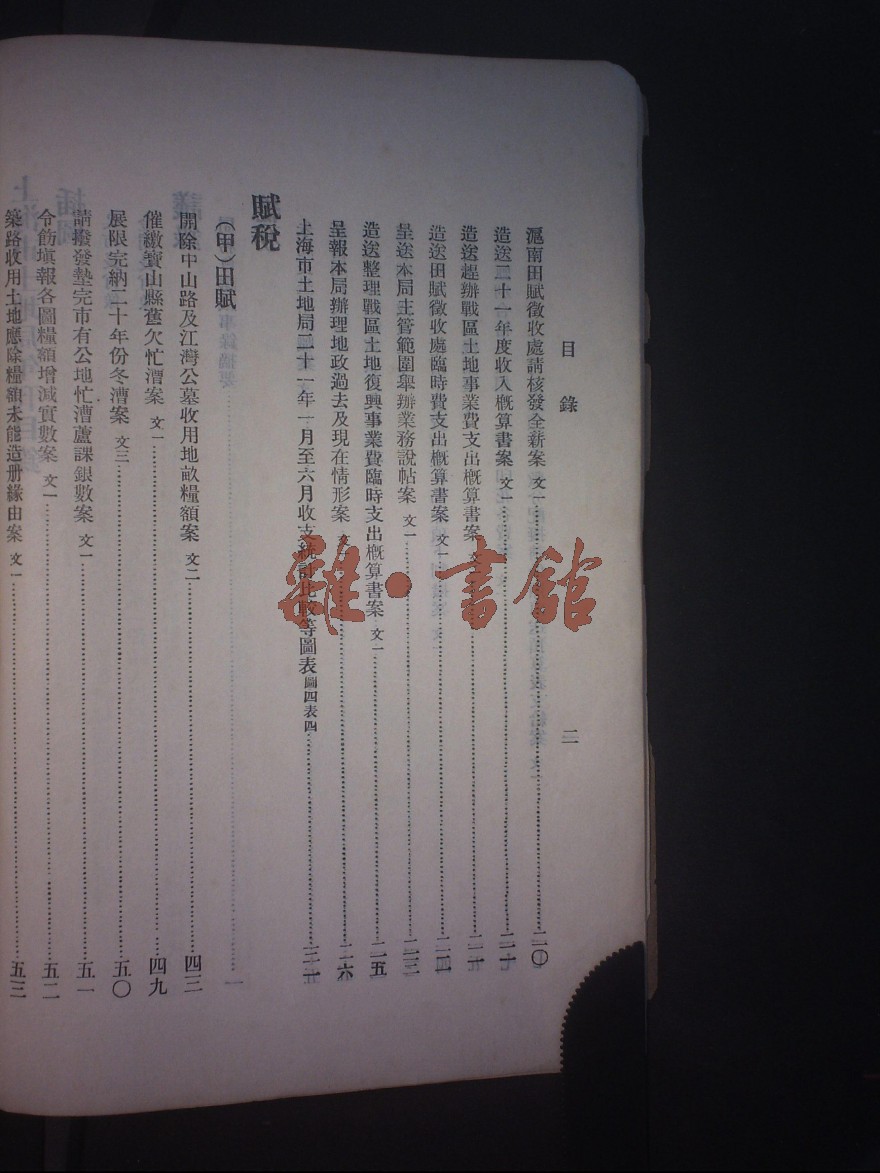 目錄 二
滬南田賦徵收處請核發全薪案 文一 二〇
造送二十一年度收入概算書案 文一
造送趕辦戰區土地事業費支出概算書案 文
造送田賦徵收處臨時費支出概算書案 文一
呈送本局主管範圍舉辦業務說帖案 文一
造送整理戰區土地復興事業費臨時支出概算書案 文一 二五
呈報本局辦理地政過去及現在情形案 二六
上海市土地局二十一年一月至六月收支統計比較等圖表 圖四表四
賦稅
(甲)田賦
開除中山路及江灣公墓收用地畝糧額案 文二 四三
催繳寶山縣舊欠忙漕案 文一 四九
展限完納二十年份冬漕案 文三 五〇
請撥發墊完市有公地忙漕蘆課銀數案 文一 五一
令飭填報各圖糧額增減實數案 文一 五二
築路收用土地應除糧額未能造册緣由案 文一 五三
雜·書館